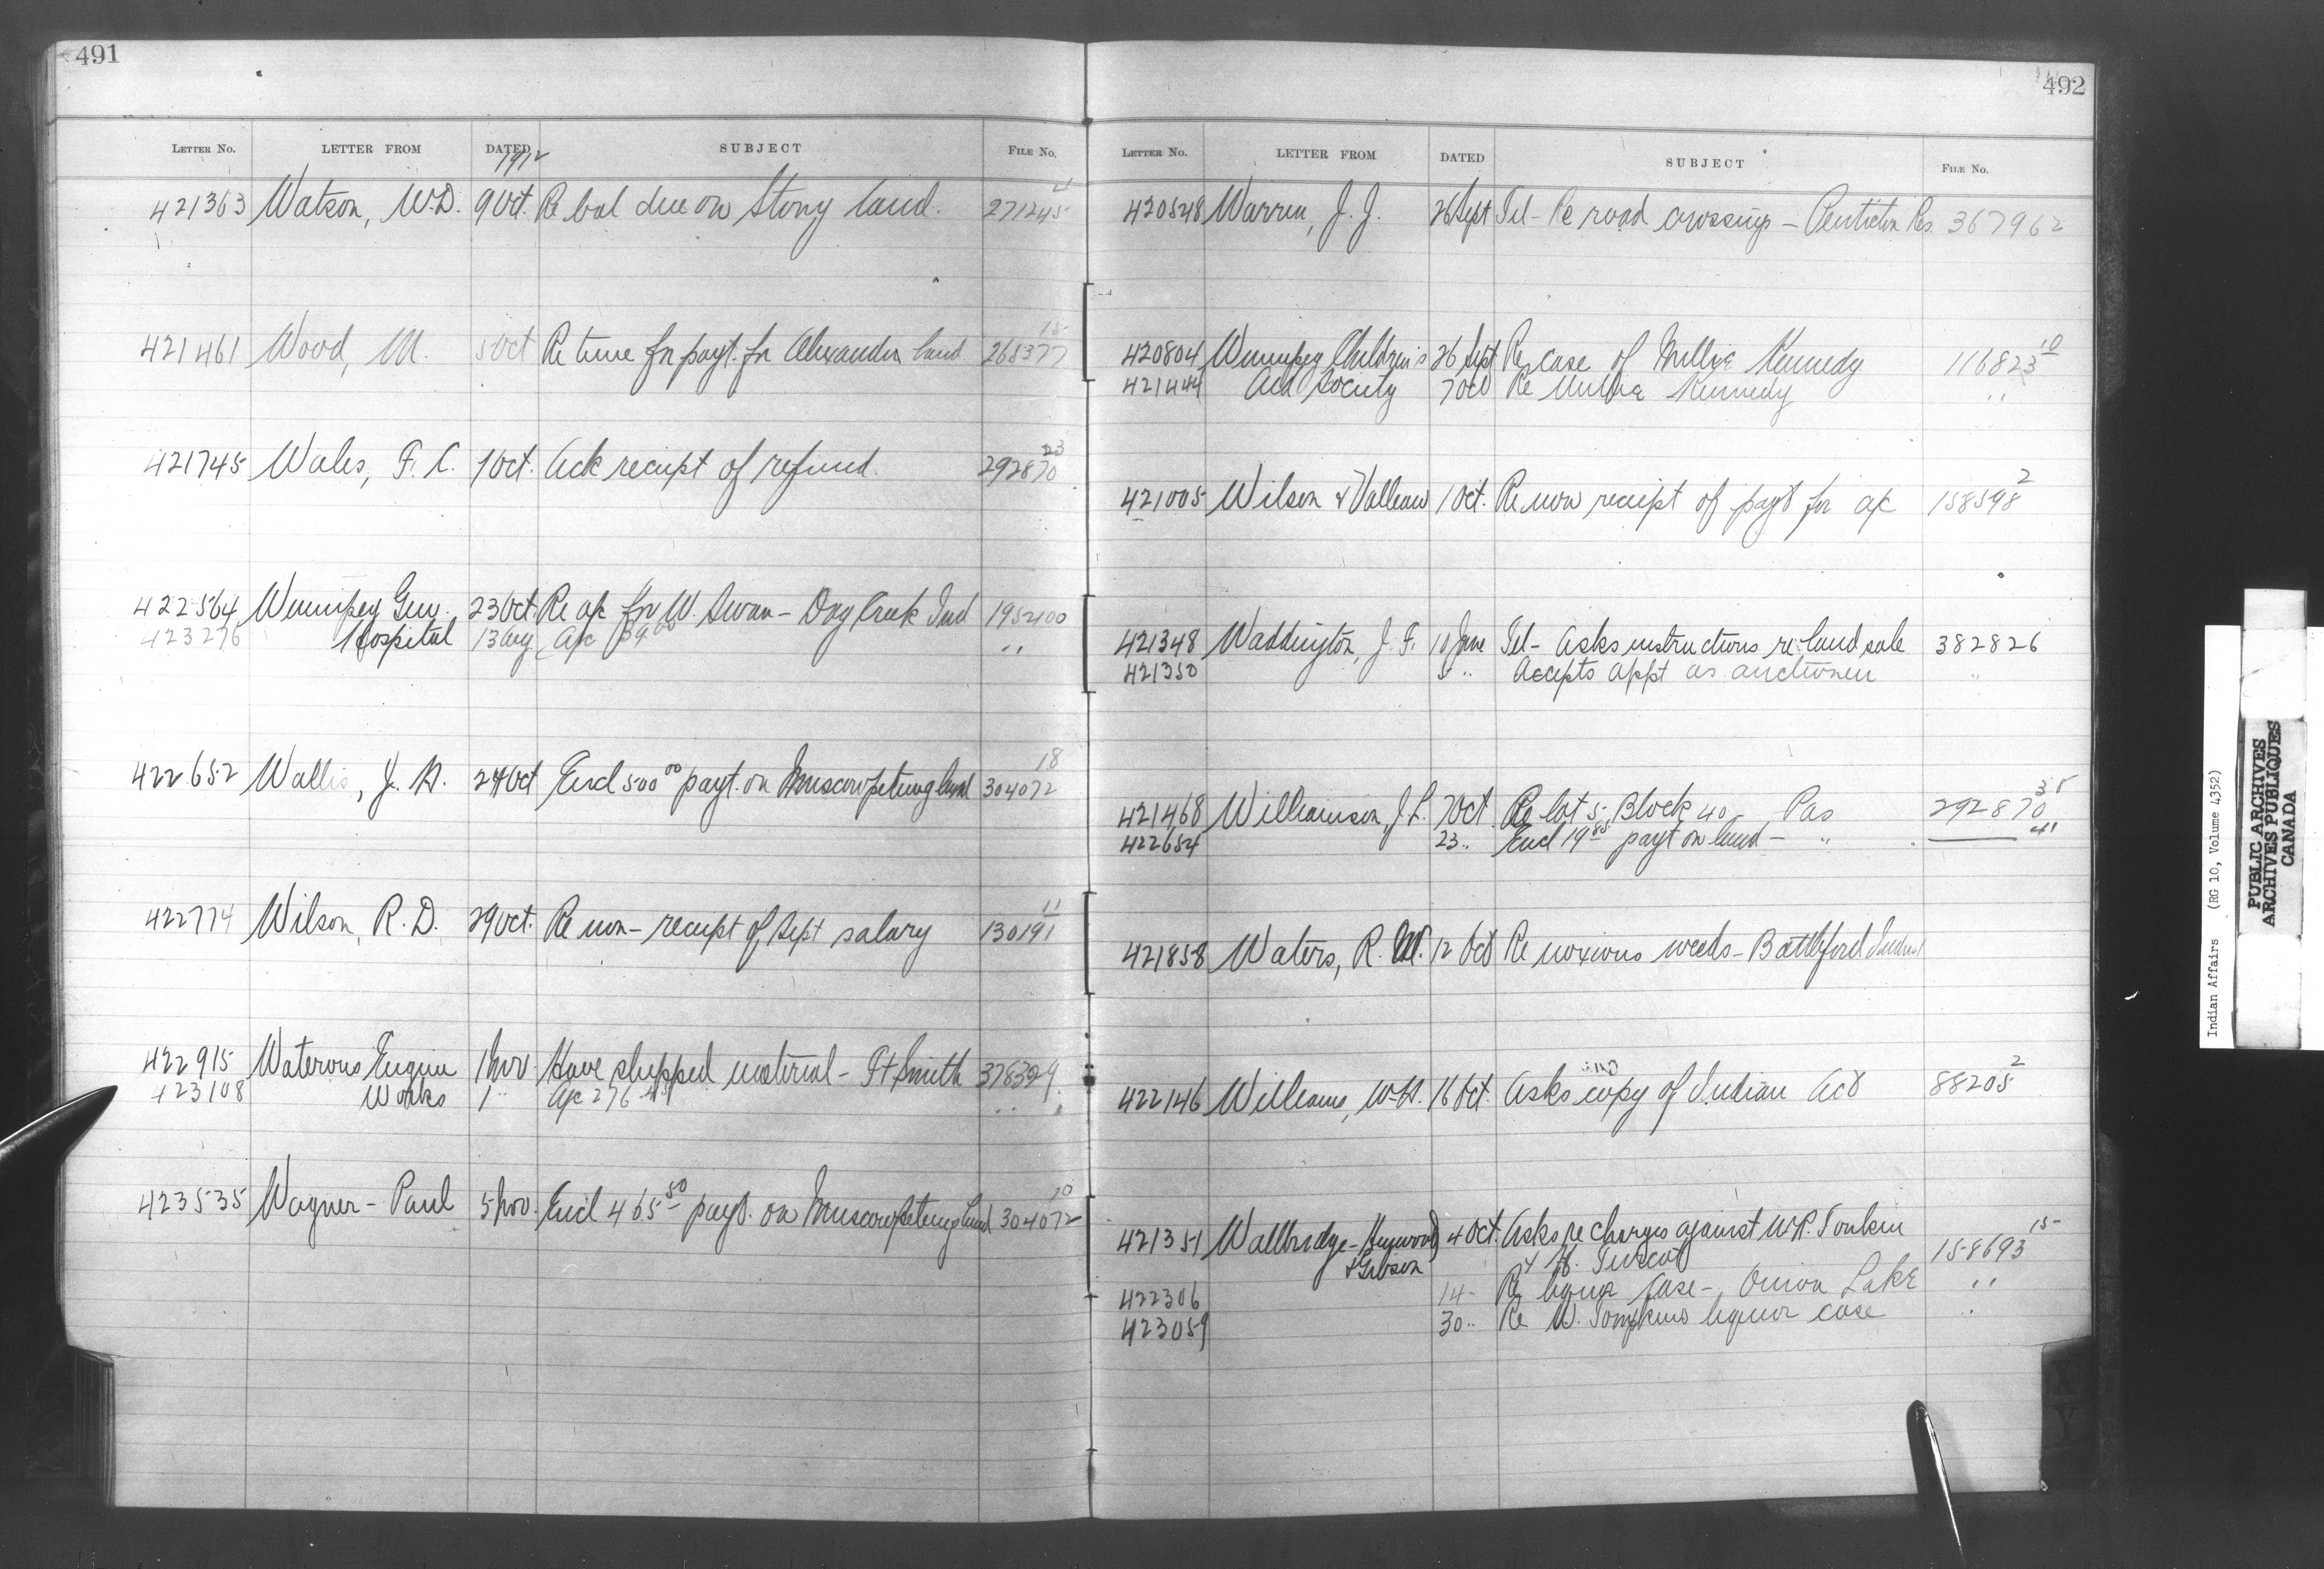 491
LETTER NO. LETTER FROM DATED 1912 SUBJECT FILE NO.
421363 Watson, W.D. 9 Oct. Re bal due on Stony land. 271245 4
421461 Wood, M. 5 Oct Re time for payt. for Alexander land 268377 15
421745 Wales, F. C. 1 Oct. Ack receipt of refund. 292870 23
422564 Winnipeg Gen. 23 Oct. Re a/c for W. Swan - Day Creek Ind 195200
423276 Hospital 13 Aug. A/c 39 00 "
422652 Wallis, J. H. 24 Oct Encl 500 00 payt. on Muscowpetung land 304072 18
422774 Wilson, R. D. 29 Oct. Re non-receipt of Sept salary 130191 11
422915 Waterous Engine 1 Nov. Have shipped material - Ft Smith 378329
423108 Works 1 " A/c 276 " "
423535 Wagner - Paul 5 Nov. Encl 465 50 payt. on Muscowpetung land 304072 10
492
LETTER NO. LETTER FROM DATED SUBJECT FILE NO.
420548 Warren, J. J. 26 Sept Tel - Re road crossings - Penticton Res. 367962
420804 Winnipeg Children's 26 Sept Re case of Millie Kennedy 116823 10
421444 Aid Society 7 Oct Re Millie Kennedy "
421005 Wilson & Valleau 1 Oct. Re non receipt of payt for a/c 158598 2
421348 Waddington, J. F. 10 June Tel - Asks instructions re land sale 382826
421350 5 " Accepts appt as auctioneer "
421468 Williamson, J. L. 7 Oct. Re lot 5, Block 40 - Pas 292870 38
422654 23 " Encl 19 85 payt on land - " 41
421858 Waters, R. W. 12 Oct Re noxious weeds - Battleford Indust
422146 Williams, W. H. 16 Oct. Asks copy of Indian Act 88205 2
421351 Wallbridge - Heywood) 4 Oct. Asks re charges against W.R. Tonkin
& Gibson & H. 158693 15
422306 14 - Re liquor case - Onion Lake "
423059 30 " Re W. Tompkins liquor case "
Indian Affairs (RG 10, Volume 4352)
PUBLIC ARCHIVES
ARCHIVES PUBLIQUES
CANADA